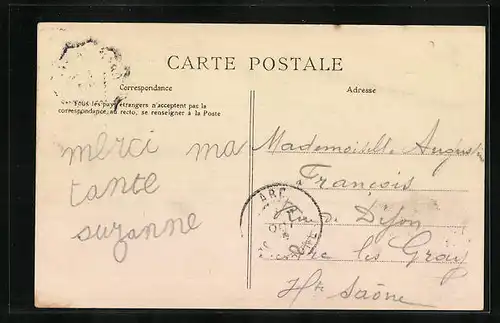 CARTE POSTALE
Correspondance
Adresse
Tous les pays étrangers n'acceptent pas la
correspondance au recto, se renseigner à la Poste
merci ma
tante
suzanne
Mademoiselle
François
Rue de Dijon
les Gray
Hte Saône
ARC